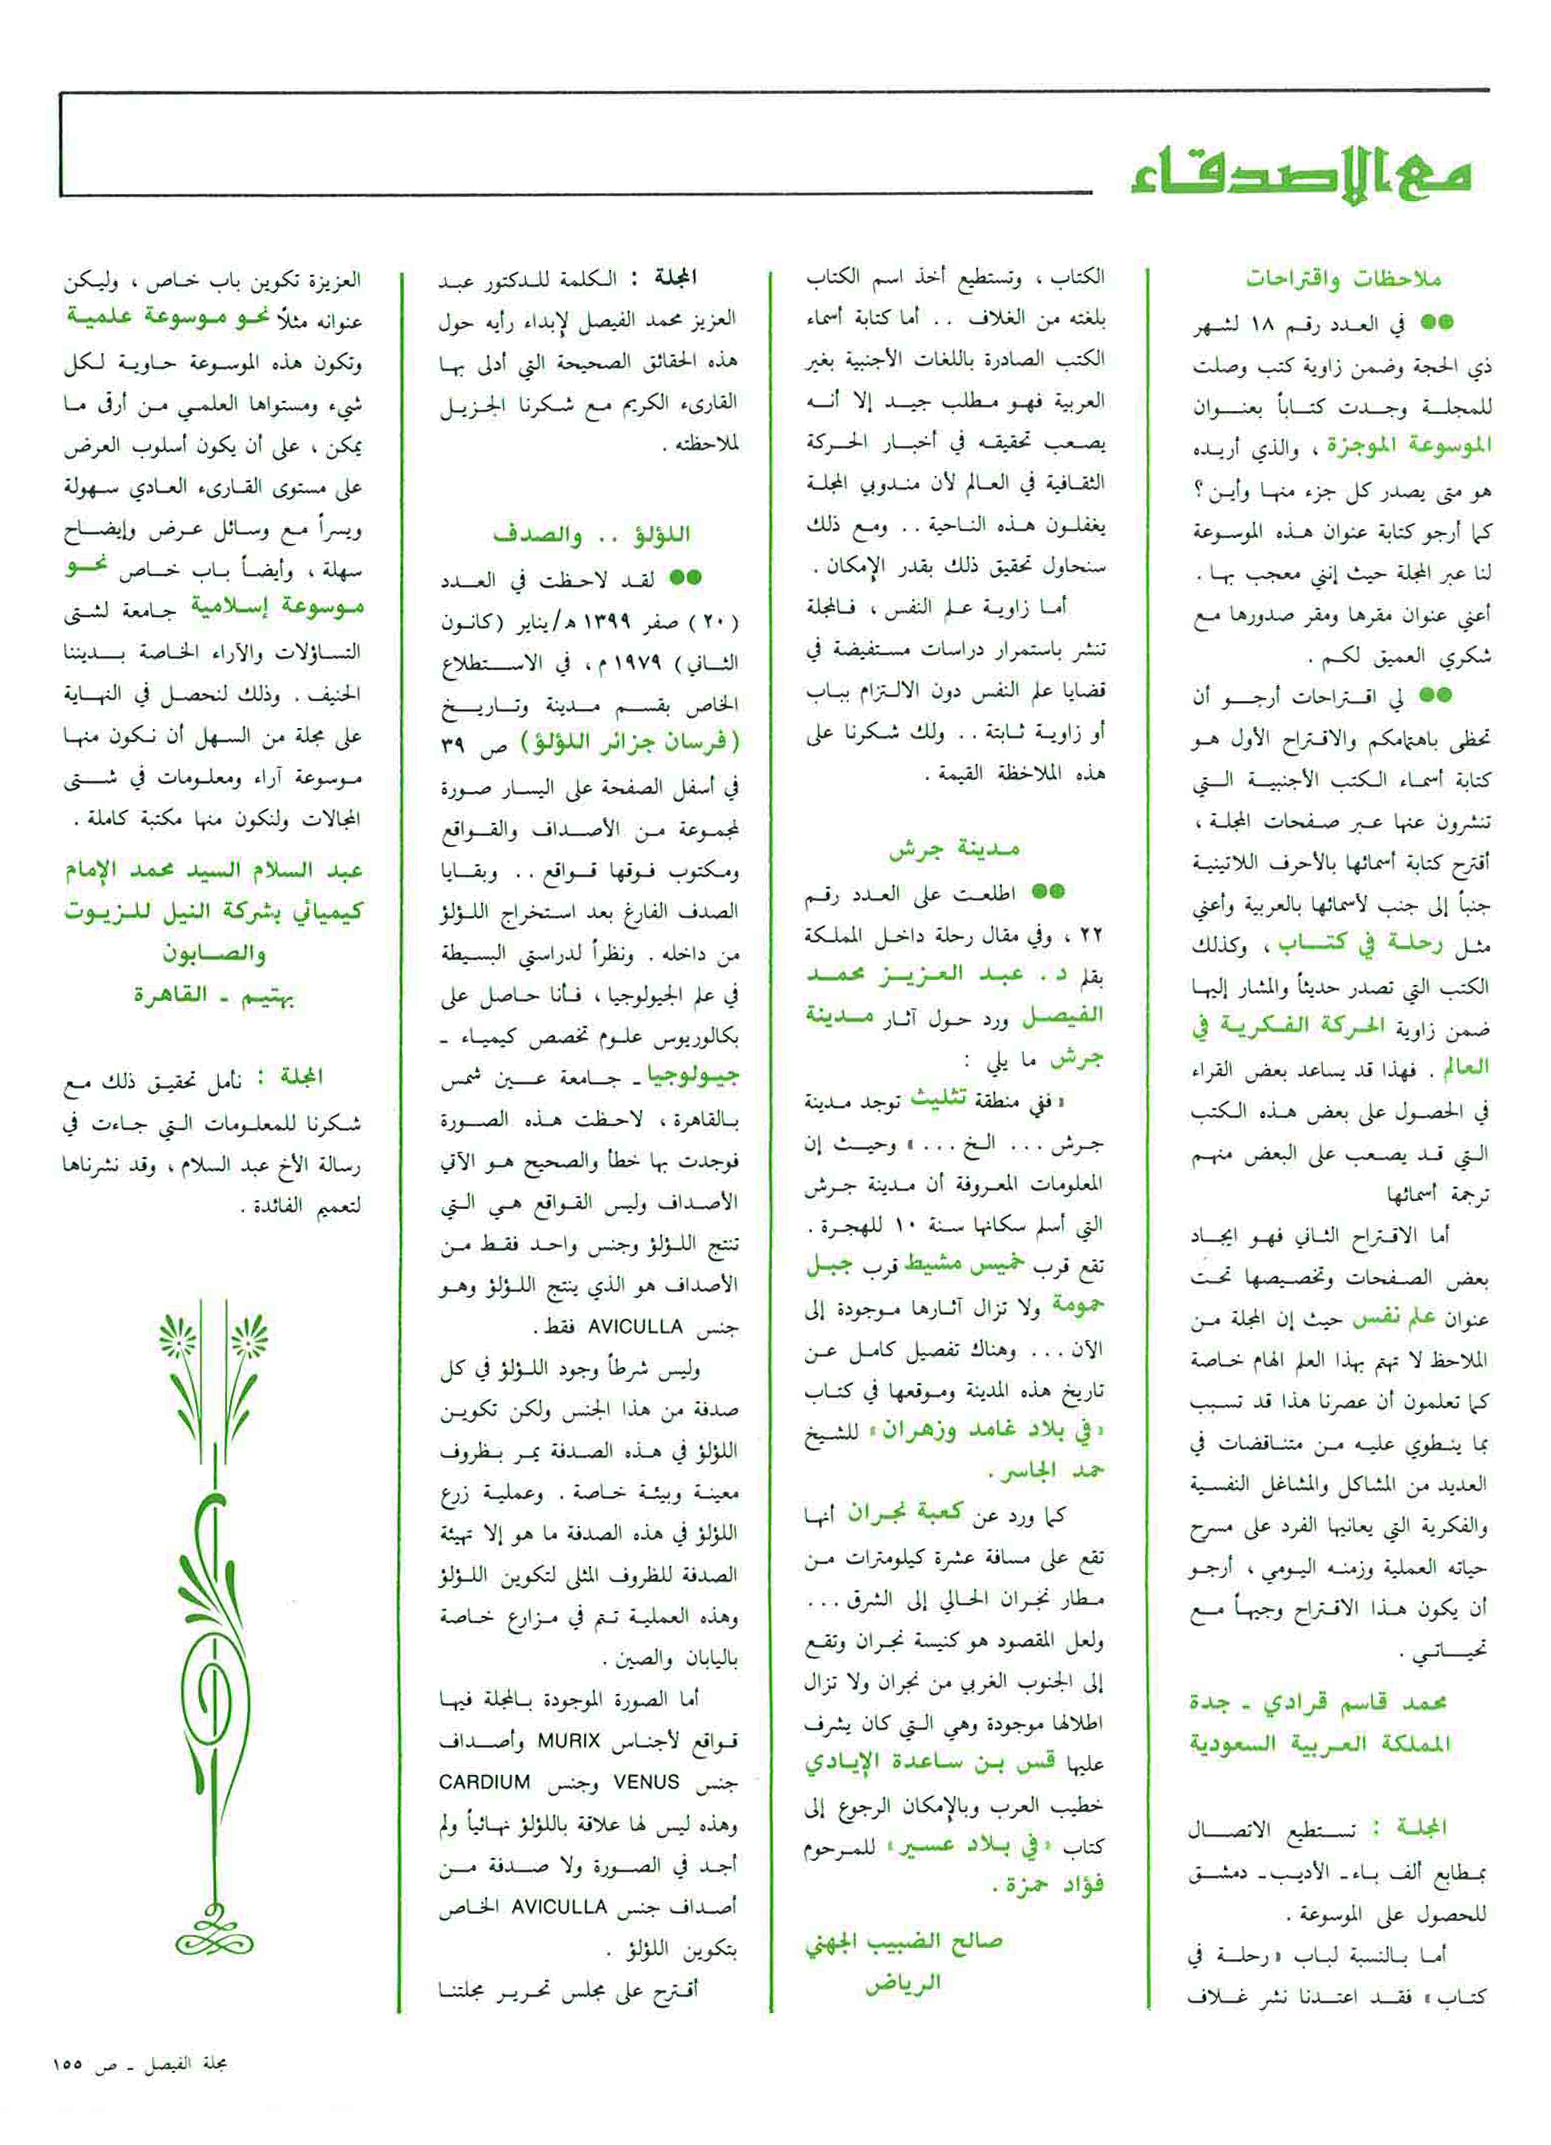 مع الاصدقاء
ملاحظات واقتراحات
●● في العدد رقم ١٨ لشهر
ذي الحجة وضمن زاوية كتب وصلت
للمجلة وجدت كتاباً بعنوان
الموسوعة الموجزة ، والذي أريده
هو متى يصدر كل جزء منها وأين ؟
كما أرجو كتابة عنوان هذه الموسوعة
لنا عبر المجلة حيث إنني معجب بها .
أعني عنوان مقرها ومقر صدورها مع
شكري العميق لكم .
●● لي اقتراحات أرجو أن
تحظى باهتمامكم والاقتراح الأول هو
كتابة أسماء الكتب الأجنبية التي
تنشرون عنها عبر صفحات المجلة ،
أقترح كتابة أسمائها بالأحرف اللاتينية
جنباً إلى جنب لأسمائها بالعربية وأعني
مثل رحلة في كتاب ، وكذلك
الكتب التي تصدر حديثاً والمشار إليها
ضمن زاوية الحركة الفكرية في
العالم . فهذا قد يساعد بعض القراء
في الحصول على بعض هذه الكتب
التي قد يصعب على البعض منهم
ترجمة أسمائها
أما الاقتراح الثاني فهو ايجاد
بعض الصفحات وتخصيصها تحت
عنوان علم نفس حيث إن المجلة من
الملاحظ لا تهتم بهذا العلم الهام خاصة
كما تعلمون أن عصرنا هذا قد تسبب
بما ينطوي عليه من متناقضات في
العديد من المشاكل والمشاغل النفسية
والفكرية التي يعانيها الفرد على مسرح
حياته العملية وزمنه اليومي ، أرجو
أن يكون هذا الاقتراح وجيهاً مع
تحياتي .
محمد قاسم قرادي ـ جدة
المملكة العربية السعودية
المجلة : تستطيع الاتصال
بمطابع ألف باء ـ الأديب ـ دمشق
للحصول على الموسوعة .
أما بالنسبة لباب « رحلة في
كتاب » فقد اعتدنا نشر غلاف
الكتاب ، وتستطيع أخذ اسم الكتاب
بلغته من الغلاف .. أما كتابة أسماء
الكتب الصادرة باللغات الأجنبية بغير
العربية فهو مطلب جيد إلا أنه
يصعب تحقيقه في أخبار الحركة
الثقافية في العالم لأن مندوبي المجلة
يغفلون هذه الناحية .. ومع ذلك
سنحاول تحقيق ذلك بقدر الإمكان .
أما زاوية علم النفس ، فالمجلة
تنشر باستمرار دراسات مستفيضة في
قضايا علم النفس دون الالتزام بباب
أو زاوية ثابتة .. ولك شكرنا على
هذه الملاحظة القيمة .
مدينة جرش
●● اطلعت على العدد رقم
٢٢ ، وفي مقال رحلة داخل المملكة
بقلم د . عبد العزيز محمد
الفيصل ورد حول آثار مدينة
جرش ما يلي :
« ففي منطقة تثليث توجد مدينة
جرش ... الخ ... » وحيث إن
المعلومات المعروفة أن مدينة جرش
التي أسلم سكانها سنة ١٠ للهجرة .
تقع قرب خميس مشيط قرب جبل
حمومة ولا تزال آثارها موجودة إلى
الآن ... وهناك تفصيل كامل عن
تاريخ هذه المدينة وموقعها في كتاب
« في بلاد غامد وزهران » للشيخ
حمد الجاسر .
كما ورد عن كعبة نجران أنها
تقع على مسافة عشرة كيلومترات من
مطار نجران الحالي إلى الشرق ...
ولعل المقصود هو كنيسة نجران وتقع
إلى الجنوب الغربي من نجران ولا تزال
اطلالها موجودة وهي التي كان يشرف
عليها قس بن ساعدة الإيادي
خطيب العرب وبالإمكان الرجوع إلى
كتاب « في بلاد عسير » للمرحوم
فؤاد حمزة .
صالح الضبيب الجهني
الرياض
المجلة : الكلمة للدكتور عبد
العزيز محمد الفيصل لإبداء رأيه حول
هذه الحقائق الصحيحة التي أدلى بها
القارىء الكريم مع شكرنا الجزيل
لملاحظته .
اللؤلؤ .. والصدف
●● لقد لاحظت في العدد
(٢٠) صفر ١٣٩٩ هـ/يناير (كانون
الثاني) ١٩٧٩ م ، في الاستطلاع
الخاص بقسم مدينة وتاريخ
(فرسان جزائر اللؤلؤ) ص ٣٩
في أسفل الصفحة على اليسار صورة
لمجموعة من الأصداف والقواقع
ومكتوب فوقها قواقع .. وبقايا
الصدف الفارغ بعد استخراج اللؤلؤ
من داخله . ونظراً لدراستي البسيطة
في علم الجيولوجيا ، فأنا حاصل على
بكالوريوس علوم تخصص كيمياء ـ
جيولوجيا ـ جامعة عين شمس
بالقاهرة ، لاحظت هذه الصورة
فوجدت بها خطأ والصحيح هو الآتي
الأصداف وليس القواقع هي التي
تنتج اللؤلؤ وجنس واحد فقط من
الأصداف هو الذي ينتج اللؤلؤ وهو
جنس AVICULLA فقط .
وليس شرطاً وجود اللؤلؤ في كل
صدفة من هذا الجنس ولكن تكوين
اللؤلؤ في هذه الصدفة يمر بظروف
معينة وبيئة خاصة . وعملية زرع
اللؤلؤ في هذه الصدفة ما هو إلا تهيئة
الصدفة للظروف المثلى لتكوين اللؤلؤ
وهذه العملية تتم في مزارع خاصة
باليابان والصين .
أما الصورة الموجودة بالمجلة فيها
قواقع لأجناس MURIX وأصداف
جنس VENUS وجنس CARDIUM
وهذه ليس لها علاقة باللؤلؤ نهائياً ولم
أجد في الصورة ولا صدفة من
أصداف جنس AVICULLA الخاص
بتكوين اللؤلؤ .
أقترح على مجلس تحرير مجلتنا
العزيزة تكوين باب خاص ، وليكن
عنوانه مثلاً نحو موسوعة علمية
وتكون هذه الموسوعة حاوية لكل
شيء ومستواها العلمي من أرقى ما
يمكن ، على أن يكون أسلوب العرض
على مستوى القارىء العادي سهولة
ويسراً مع وسائل عرض وإيضاح
سهلة ، وأيضاً باب خاص نحو
موسوعة إسلامية جامعة لشتى
التساؤلات والآراء الخاصة بديننا
الحنيف . وذلك لنحصل في النهاية
على مجلة من السهل أن نكون منها
موسوعة آراء ومعلومات في شتى
المجالات ولنكون منها مكتبة كاملة .
عبد السلام السيد محمد الإمام
كيميائي بشركة النيل للزيوت
والصابون
بهتيم ـ القاهرة
المجلة : نأمل تحقيق ذلك مع
شكرنا للمعلومات التي جاءت في
رسالة الأخ عبد السلام ، وقد نشرناها
لتعميم الفائدة .
مجلة الفيصل ـ ص ١٥٥